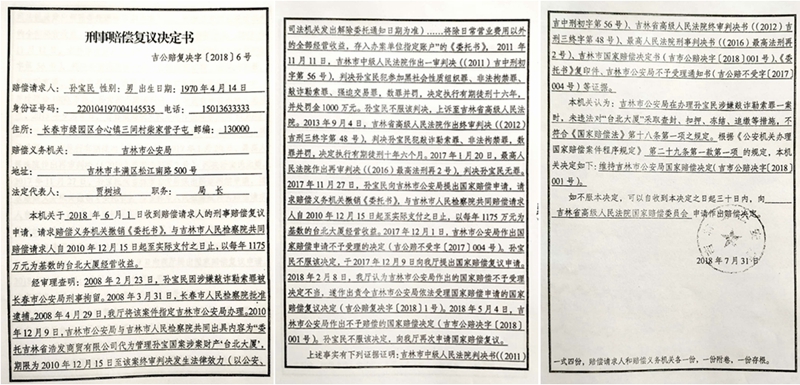 刑事赔偿复议决定书
吉公赔复决字【2018】6号
赔偿请求人：孙宝民 性别：男 出生日期：1970年4月14日
身份证号码：220104197004145535 电话：15013633333
住所：长春市绿园区合心镇三间村柴家窖子屯 邮编：130000
赔偿义务机关：吉林市公安局
地址：吉林市丰满区松江南路500号
法定代表人：贾树城 职务：局长
本机关于2018年6月1日收到赔偿请求人的刑事赔偿复议
申请，请求赔偿义务机关撤销《委托书》、与吉林市人民检察院共同
赔偿请求人自2010年12月15日起至实际支付之日止，以每年1175
万元为基数的台北大厦经营收益。
经审理查明：2008年2月23日，孙宝民因涉嫌敲诈勒索罪被
长春市公安局刑事拘留。2008年3月31日，长春市人民检察院批准
逮捕。2008年4月29日，我厅将该案件指定吉林市公安局办理。2010
年12月9日，吉林市公安局与吉林市人民检察院共同出具内容为“委
托吉林省浩发商贸有限公司代为管理孙宝国案涉案财产‘台北大厦’，
期限为2010年12月15日至该案终审判决发生法律效力（以公安、
司法机关发出解除委托通知日期为准）……将除日常营业费用以外
的全部经营收益，存入办案单位指定账户”的《委托书》。2011年
11月11日，吉林市中级人民法院作出一审判决（（2011）吉中刑初
字第56号），判决孙宝民犯参加黑社会性质组织罪、非法拘禁罪、
敲诈勒索罪、强迫交易罪，数罪并罚，决定执行有期徒刑十六年，
并处罚金1000万元。孙宝民不服该判决，上诉至吉林省高级人民法
院。2013年9月4日，吉林省高级人民法院作出终审判决（（2012）
吉刑三终字第48号），判决孙宝民犯敲诈勒索罪、非法拘禁罪，数
罪并罚，决定执行有期徒刑十年六个月。2017年1月20日，最高人
民法院作出再审判决（（2016）最高法刑再2号），判决孙宝民无罪。
2017年11月27日，孙宝民向吉林市公安局提出国家赔偿申请，请
求赔偿义务机关撤销《委托书》、与吉林市人民检察院共同赔偿请求
人自2010年12月15日起至实际支付之日止，以每年1175万元为基
数的台北大厦经营收益。2017年12月1日，吉林市公安局作出国家
赔偿申请不予受理的决定（吉公赔不受字【2017】004号）。孙宝民
不服该决定，于2017年12月9日向我厅提出国家赔偿复议申请。
2018年2月8日，我厅认为吉林市公安局作出的国家赔偿不予受理
决定不当，遂作出责令吉林市公安局依法受理国家赔偿申请的国家
赔偿复议决定（吉公赔复决字【2018】1号）。2018年5月4日，吉林
市公安局作出不予赔偿的国家赔偿决定（吉市公赔决字【2018】
001号）。孙宝民不服该决定，向我厅再次申请国家赔偿复议。
上述事实有下列证据证明：吉林市中级人民法院判决书（（2011）
吉中刑初字第56号）、吉林省高级人民法院终审判决书（（2012）吉
刑三终字第48号）、最高人民法院刑事判决书（（2016）最高法刑再2
号）、吉林市国家赔偿决定书（吉市公赔决字【2018】001号）、《委
托书》复印件、吉林市公安局不予受理通知书（吉公赔不受字【2017】
004号）等证据。
本机关认为：吉林市公安局在办理孙宝民涉嫌敲诈勒索罪一案
时，未违法对“台北大厦”采取查封、扣押、冻结、追缴等措施，不
符合《国家赔偿法》第十八条第一项之规定。根据《公安机关办理
国家赔偿案件程序规定》第二十九条第一款第一项的规定，本机
关决定如下：维持吉林市公安局国家赔偿决定（吉市公赔决字【2018】
001号）。
如不服本决定，可以自收到本决定之日起三十日内，向
吉林省高级人民法院国家赔偿委员会申请作出赔偿决定。
2018年7月31日
一式四份，赔偿请求人和赔偿义务机关各一份，一份附卷，一份存根。